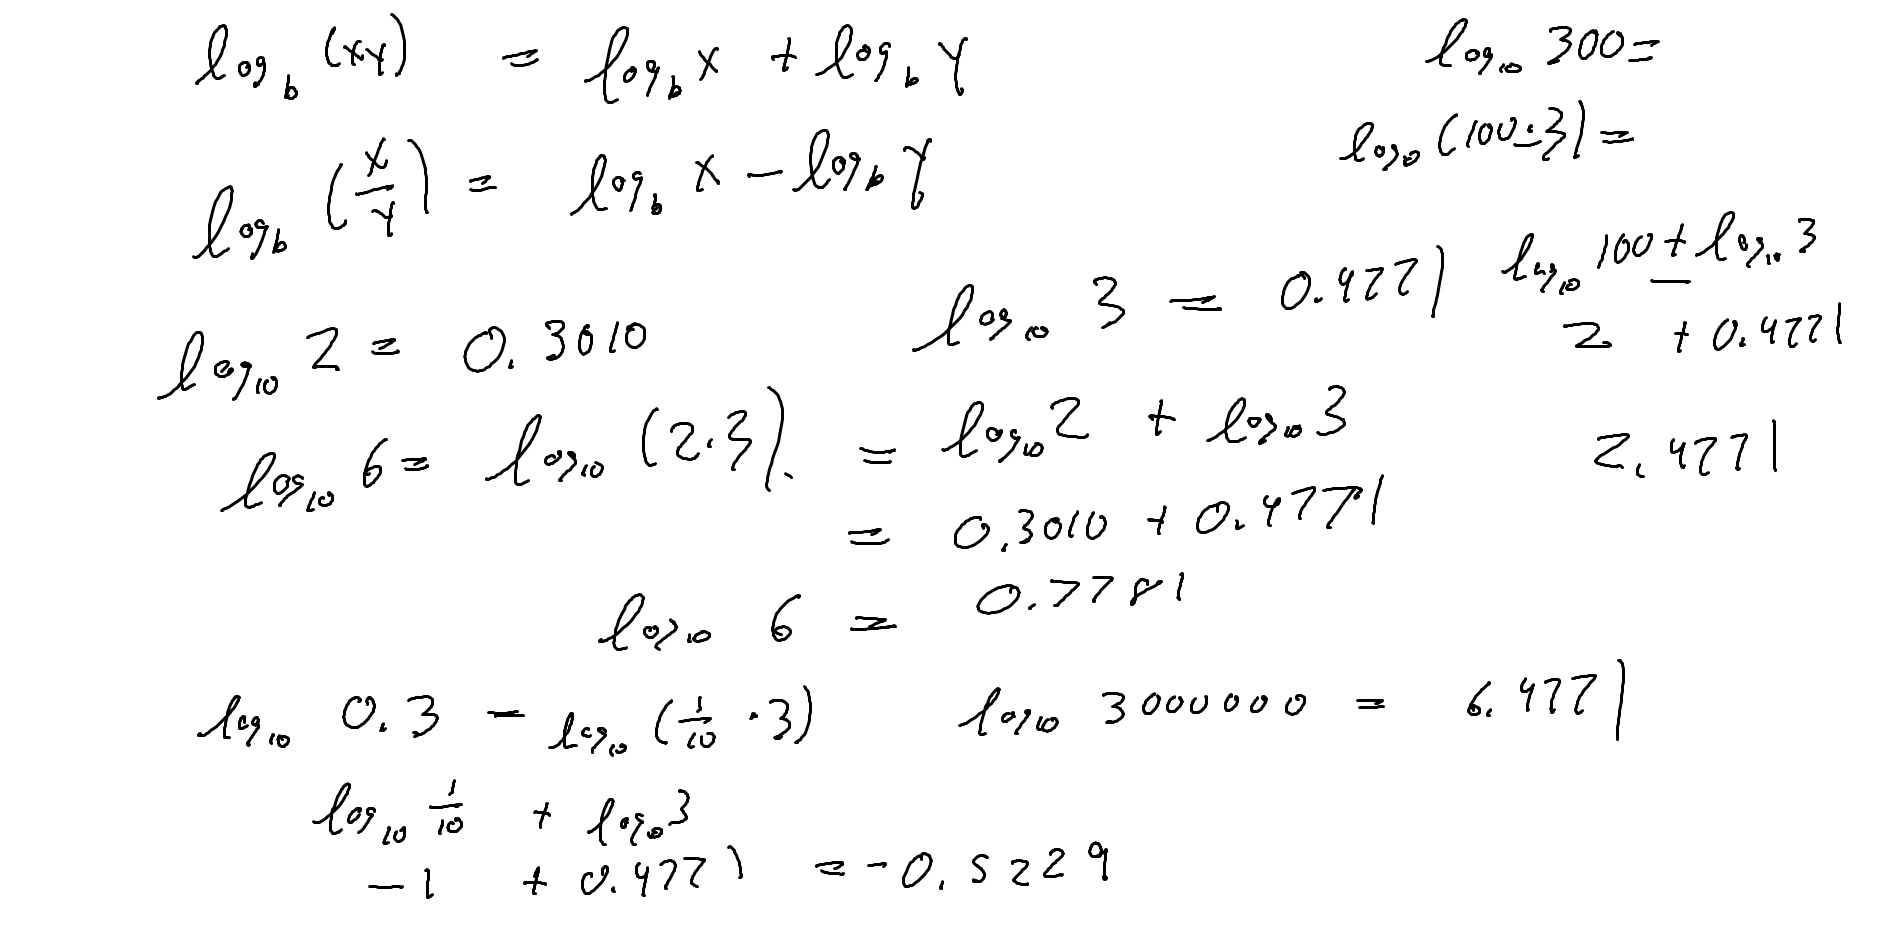 log_b (xy) = log_b x + log_b y
log_b (x/y) = log_b x - log_b y
log_10 2 = 0.3010
log_10 3 = 0.4771
log_10 6 = log_10 (2·3) = log_10 2 + log_10 3
= 0.3010 + 0.4771
log_10 6 = 0.7781
log_10 300 =
log_10 (100·3) =
log_10 100 + log_10 3
2 + 0.4771
2.4771
log_10 0.3 - log_10 (1/10 · 3)
log_10 1/10 + log_10 3
-1 + 0.4771 = -0.5229
log_10 3000000 = 6.4771